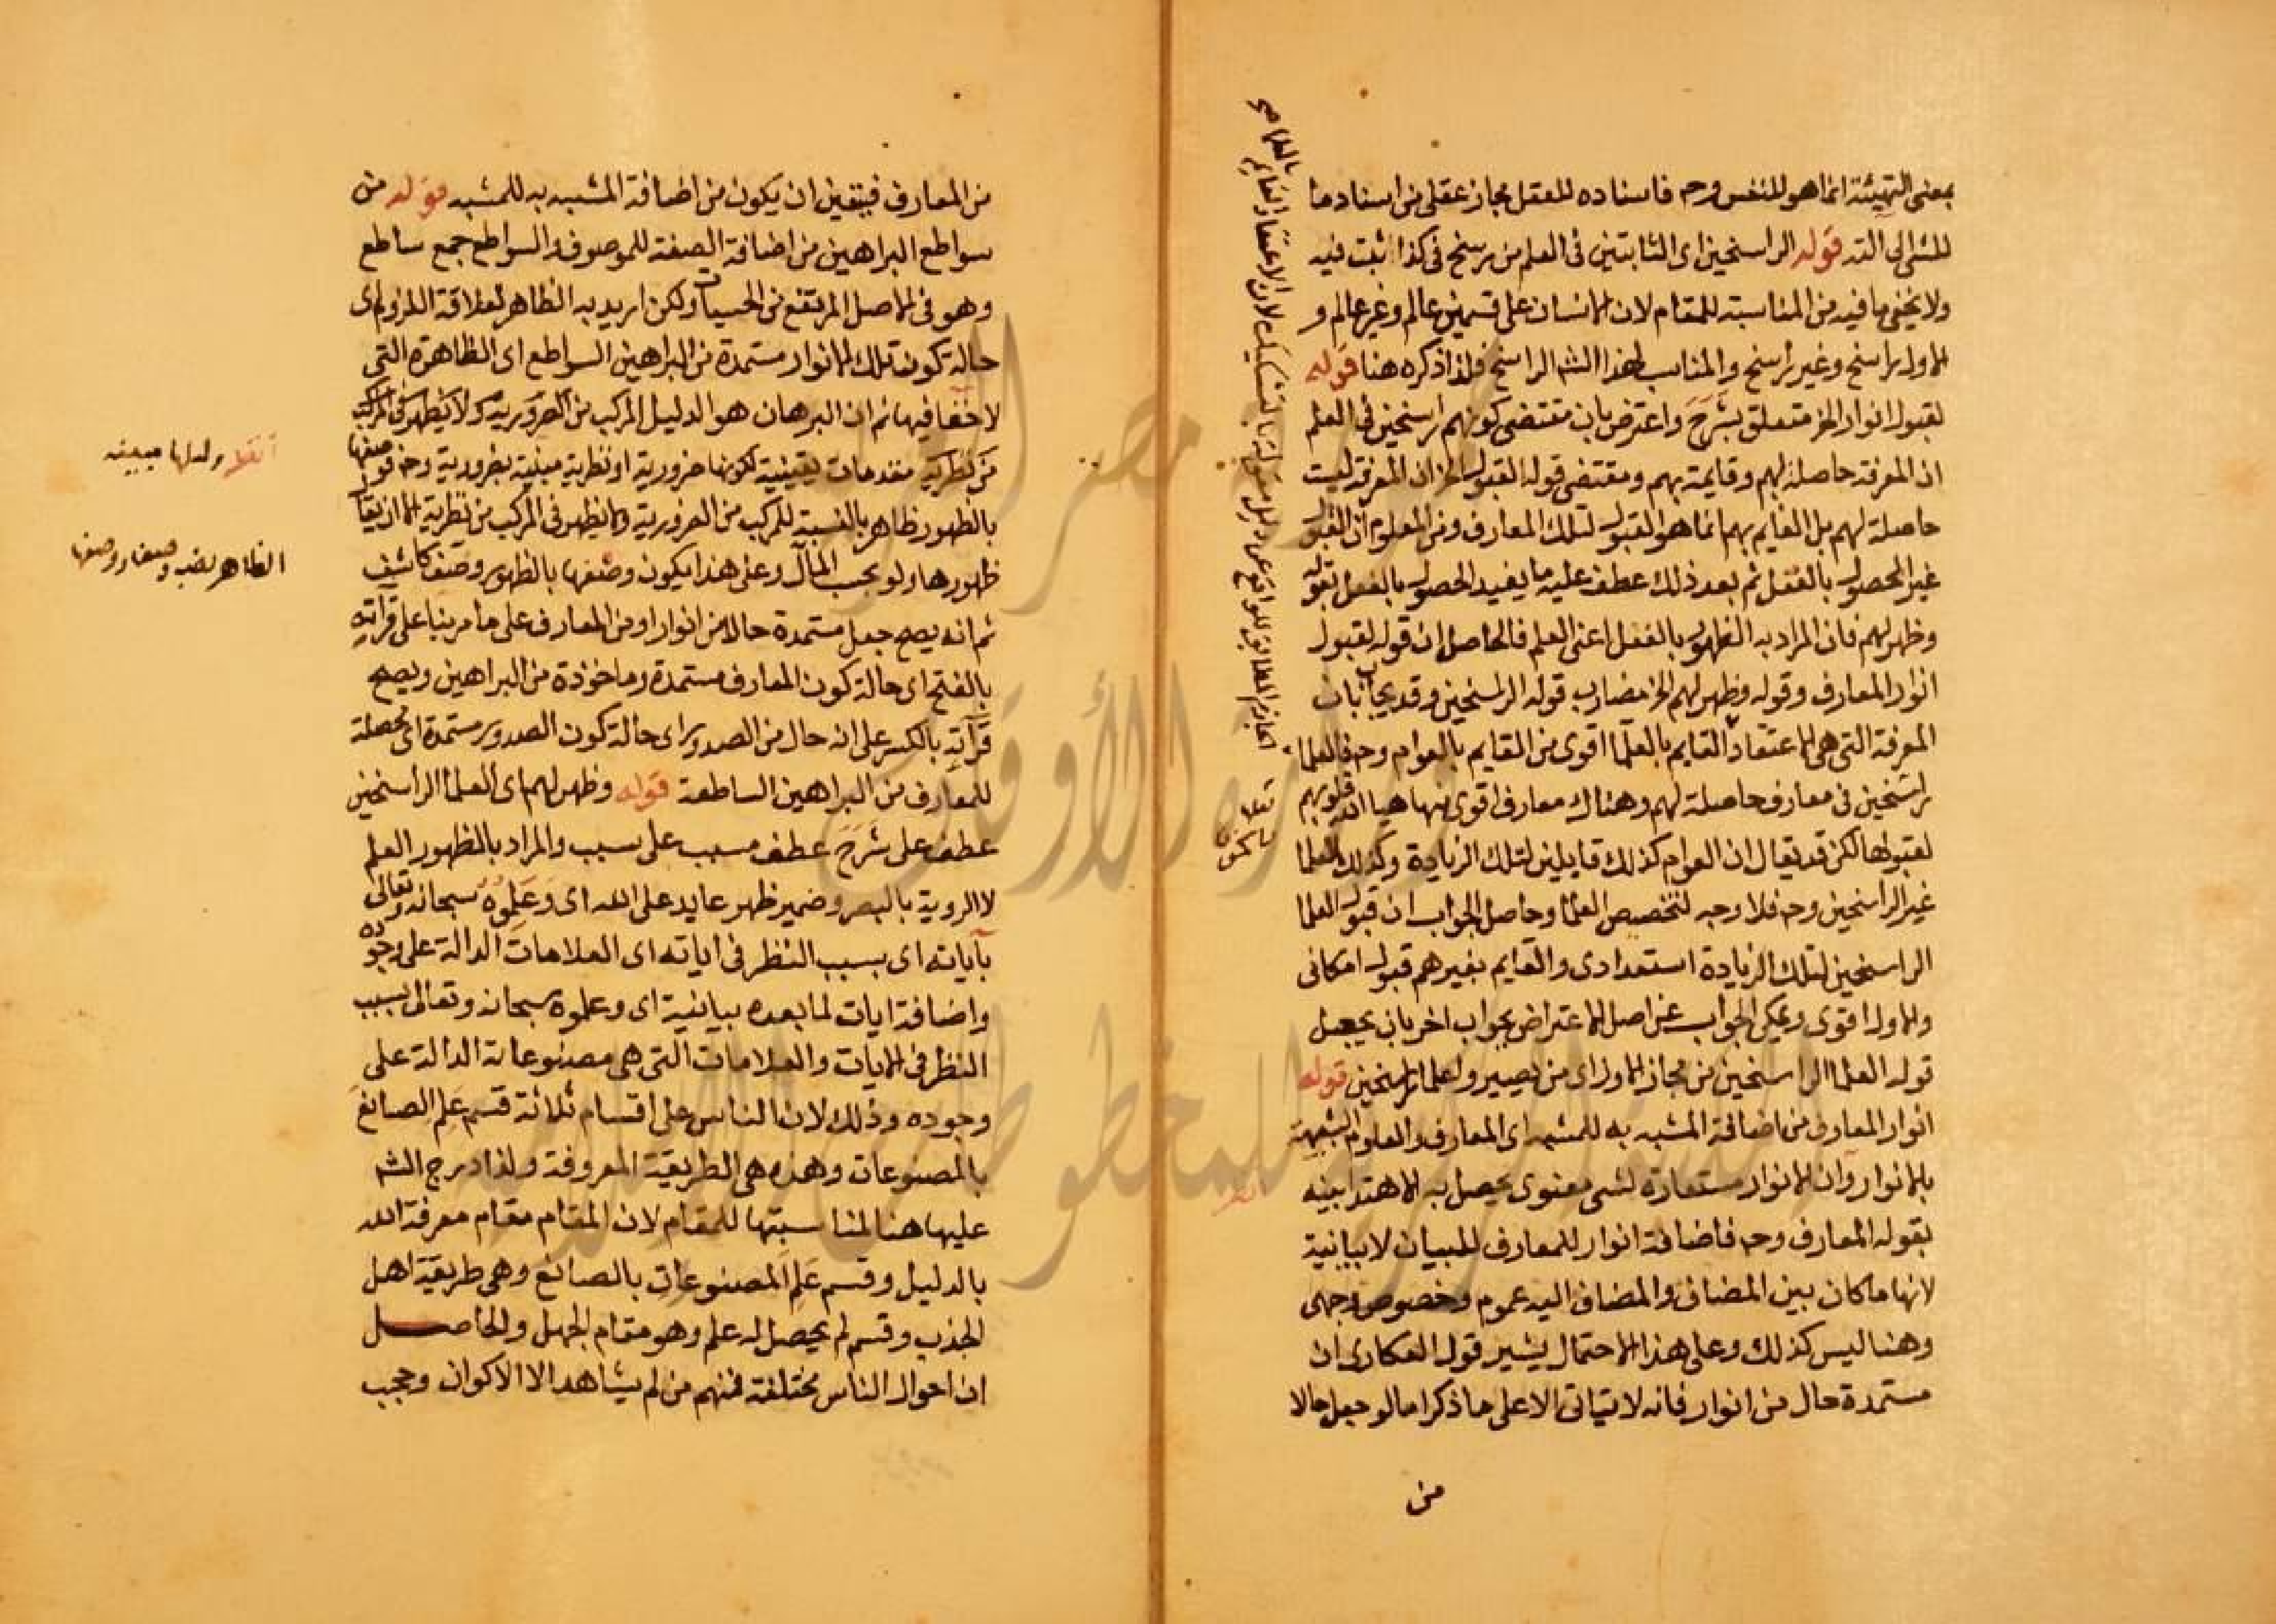 بمعنى التهيئة انما هو للنفس وح فاسناده للعقل مجاز عقلي من اسناد ما
للشئ الى التد قوله الراسخين اى الثابتين فى العلم من رسخ فى كذا ثبت فيه
ولا يخفى ما فيه من المناسبة للمقام لان الانسان على قسمين عالم وغير عالم و
الاول راسخ وغير راسخ والمناسب لهذا الشر الراسخ فلذا ذكره هنا قوله
لقبول انوار الخ متعلق بشرح واعترض بان مقتضى كونهم راسخين فى العلم
ان المعرفة حاصلة لهم وقايمة بهم ومقتضى قوله لقبول الخ ان المعرفة ليست
حاصلة لهم بل القايم بهم انما هو القبول لتلك المعارف ومن المعلوم ان القبول
غير الحصول بالفعل ثم بعد ذلك عطف عليه ما يفيد الحصول بالفعل بقوله
وظهر لهم فان المراد به الظهور بالفعل اعنى العلم فالحاصل ان قوله لقبول
انوار المعارف وقوله وظهر لهم الخ مضارب قوله الراسخين وقد يجاب بان
المعرفة التى هى الاعتقاد القايم بالعلما اقوى من القايم بالعوام وح فالعلما
راسخين فى معارف حاصلة لهم وهناك معارف اقوى منها هيا الله قلوبهم
لقبولها لكن قد يقال ان العوام كذلك قابلين لتلك الزيادة وكذلك العلما
غير الراسخين وح فلا وجه لتخصيص العلما وحاصل الجواب ان قبول العلما
الراسخين لتلك الزيادة استعدادى والقايم بغيرهم قبول امكانى
والاول اقوى ويمكن الجواب عن اصل الاعتراض بجواب اخر بان يجعل
قوله العلما الراسخين من مجاز الاول اى من يصيروا علما راسخين قوله
انوار المعارف من اضافة المشبه به للمشبه اى المعارف والعلوم الشبيهة
بالانوار وان الانوار مستعارة لشى معنوى يحصل به الاهتدا بينه
بقوله المعارف وح فاضافة انوار للمعارف للبيان لا بيانية
لانها ما كان بين المضاف والمضاف اليه عموم وخصوص وجهى
وهنا ليس كذلك وعلى هذا الاحتمال يشير قول العكارى ان
مستمدة حال من انوار فانه لا يتاتى الا على ما ذكر اما لو جعل حالا
من
من المعارف فيتعين ان يكون من اضافة المشبه به للمشبه قوله من
سواطع البراهين من اضافة الصفة للموصوف والسواطع جمع ساطع
وهو فى الاصل المرتفع من الحسيات ولكن اريد به الظاهر لعلاقة اللزوم اى
حالة كون تلك الانوار مستمدة من البراهين السواطع اى الظاهرة التى
لا خفا فيها ثم ان البرهان هو الدليل المركب من الضرورية ولا يظهر فى المركب
من نظرية مقدمات يقينية لكونها ضرورية او نظرية مبنية بضرورية وح فوصفها
بالظهور ظاهر بالنسبة للمركب من الضرورية ولا يظهر فى المركب من نظرية الا ان يقال
ظهورها ولو بحسب المآل وعلى هذا يكون وصفها بالظهور وصف كاشف
ثم انه يصح جعل مستمدة حالا من انوار او من المعارف على ما مر بنا على قرأته
بالفتح اى حالة كون المعارف مستمدة وماخوذة من البراهين ويصح
قرأته بالكسر على انه حال من الصدور اى حالة كون الصدور مستمدة اى محصلة
للمعارف من البراهين الساطعة قوله وظهر لهم اى العلما الراسخين
عطف على شرح عطف مسبب على سبب والمراد بالظهور العلم
لا الروية بالبصر وضمير ظهر عايد على الله اى وعلموه سبحانه وتعالى
بآياته اى بسبب النظر فى اياته اى العلامات الدالة على وجوده
واضافة ايات لما بعده بيانية اى وعلموه سبحانه وتعالى بسبب
النظر فى الايات والعلامات التى هى مصنوعاته الدالة على
وجوده وذلك لان الناس على اقسام ثلاثة قسم علم الصانع
بالمصنوعات وهذه هى الطريقة المعروفة ولذا درج الشر
عليها هنا لمناسبتها للمقام لان المقام مقام معرفة الله
بالدليل وقسم علم المصنوعات بالصانع وهى طريقة اهل
الجذب وقسم لم يحصل له علم وهو مقام الجهل والحاصل
ان احوال الناس مختلفة فمنهم من لم يشاهد الا الاكوان وحجب